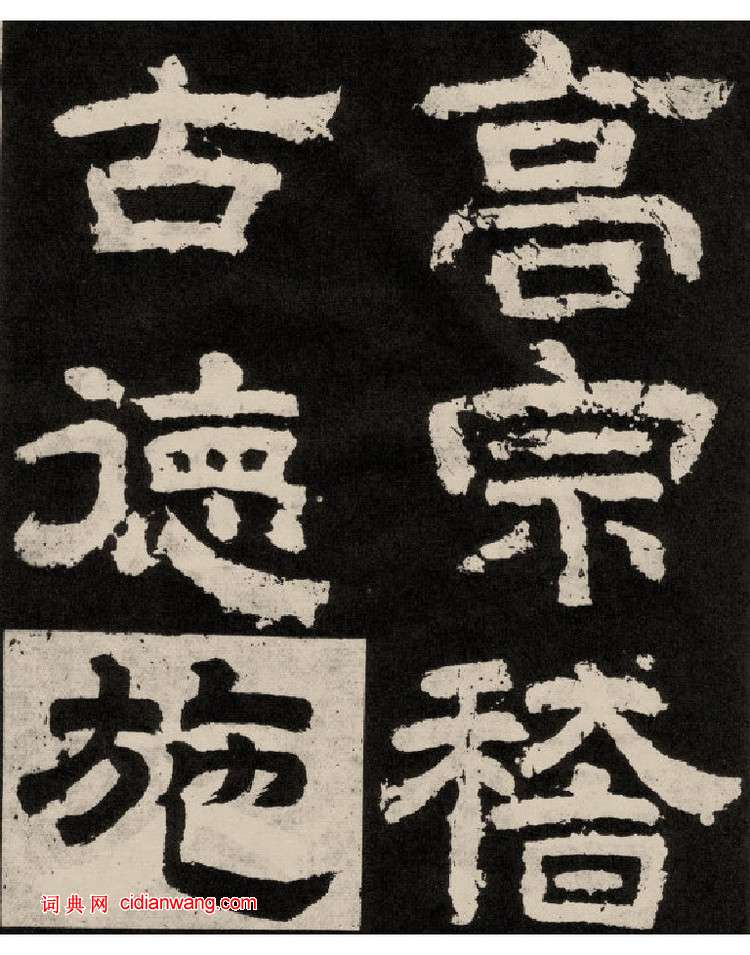 高宗稽
古德施
词典网 cidianwang.com